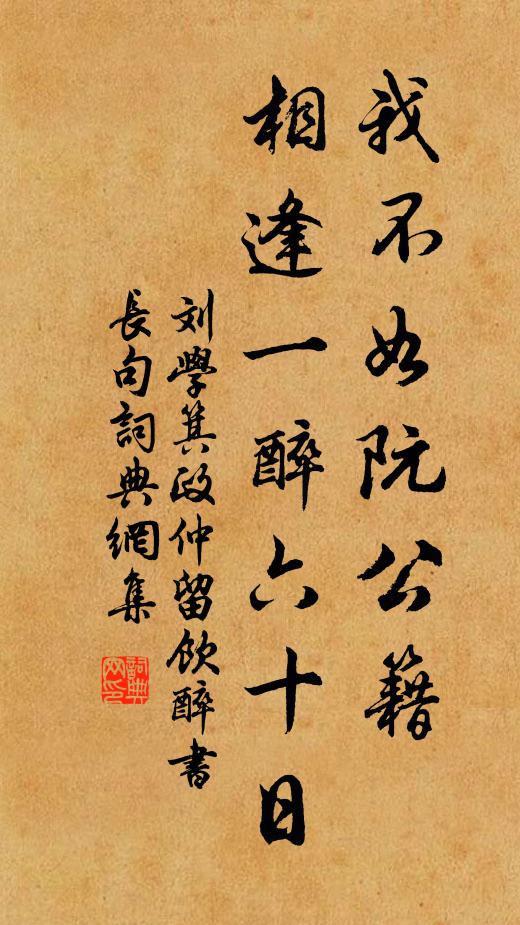 我不如阮公籍
相逢一醉六十日
刘學箕政仲留飲醉書
長句詞典網集
詞典网印